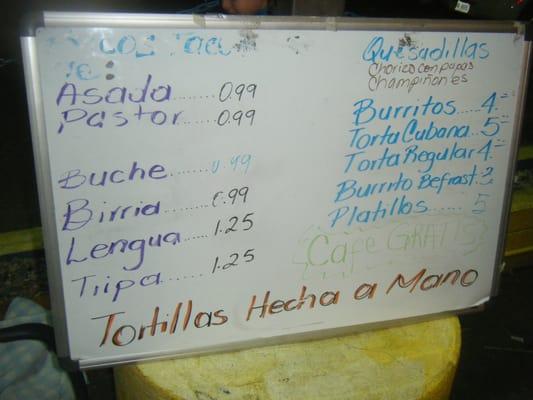 Tacos Tacos
De:
Asada........ 0.99
Pastor........ 0.99
Buche........ 0.99
Birria......... 0.99
Lengua........ 1.25
Tripa....... 1.25
Quesadillas
Chorizo con papas
Champiñones
Burritos.... 4.=
Torta Cubana.. 5=
Torta Regular 4.=
Burrito Befrast 3
Platillos....... 5
Cafe GRATIS
Tortillas Hecha a Mano